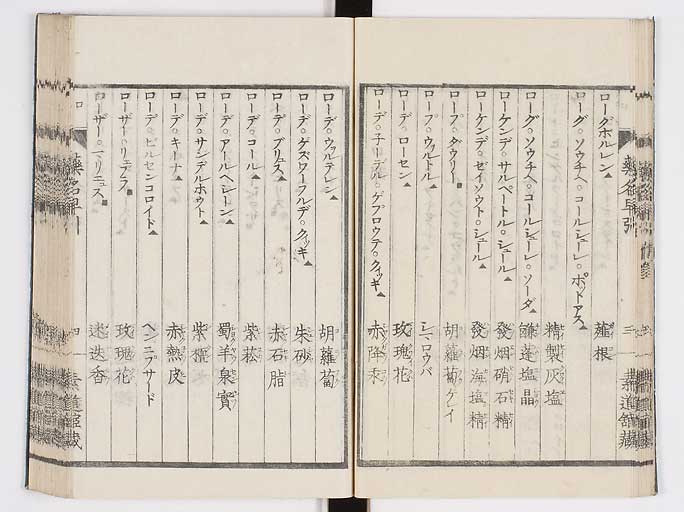 ローグホルレン▲ 蘆根
ローグ。ソウチヘ。コールシューレ。ポットアス▲
精製灰塩
ローグ。ソウチヘ。コールシューレ。ソーダ▲ 鹻蓬塩晶
ローケンデ。サルペートル。シュール▲ 發烟硝石精
ローケンデ。ゼイソウト。シュール▲ 發烟海塩精
ローブ。ダウリー■ 胡蘿蔔ケレイ
ロープ。ウヲルトル▲ シマロウバ
ローデ。ローセン▲ 玫瑰花
ローデ。子ーデル。ゲプロウテ。クィッキ▲ 赤降汞
ローデ。ウヲルテレン▲ 胡蘿蔔
ローデ。ゲズワーフルデ。クィッキ▲ 朱砂
ローデ。ブリュス▲ 赤石脂
ローデ。コール▲ 紫菘
ローデ。アールヘシーン▲ 蜀羊泉實
ローデ。サンデルホウト▲ 紫檀
ローデ。キーナ▲ 赤熱皮
ローデ。ピルセンコロイド▲ ヘンニブサード
ローザー。リュブラ■ 玫瑰花
ローザー。マリニュス■ 迷迭香
藥名早引 三 素道舘藏
ロ 藥名早引 四 素道舘藏